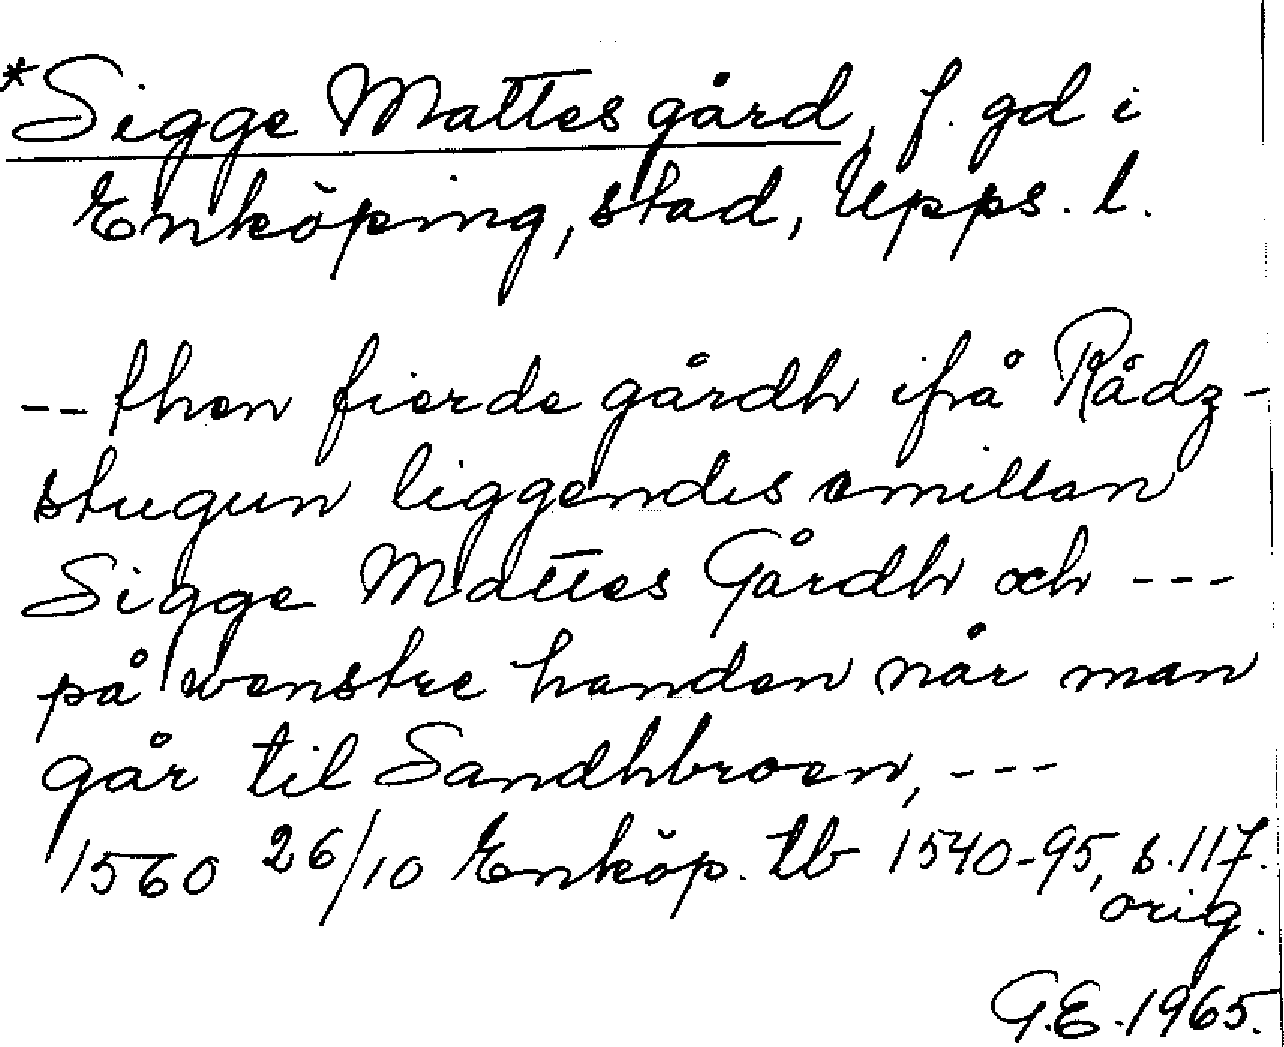 *Sigge Mattes gård, f. gd i
Enköping, stad, Upps. l.
-- then fierde gårdh ifrå Rådz-
stugun liggendis emillan
Sigge Mattes Gårdh och ---
på wenstre handen når man
går til Sandhbroen, ---
1560 26/10 Enköp. tb 1540-95, s. 117.
orig.
G.E. 1965.